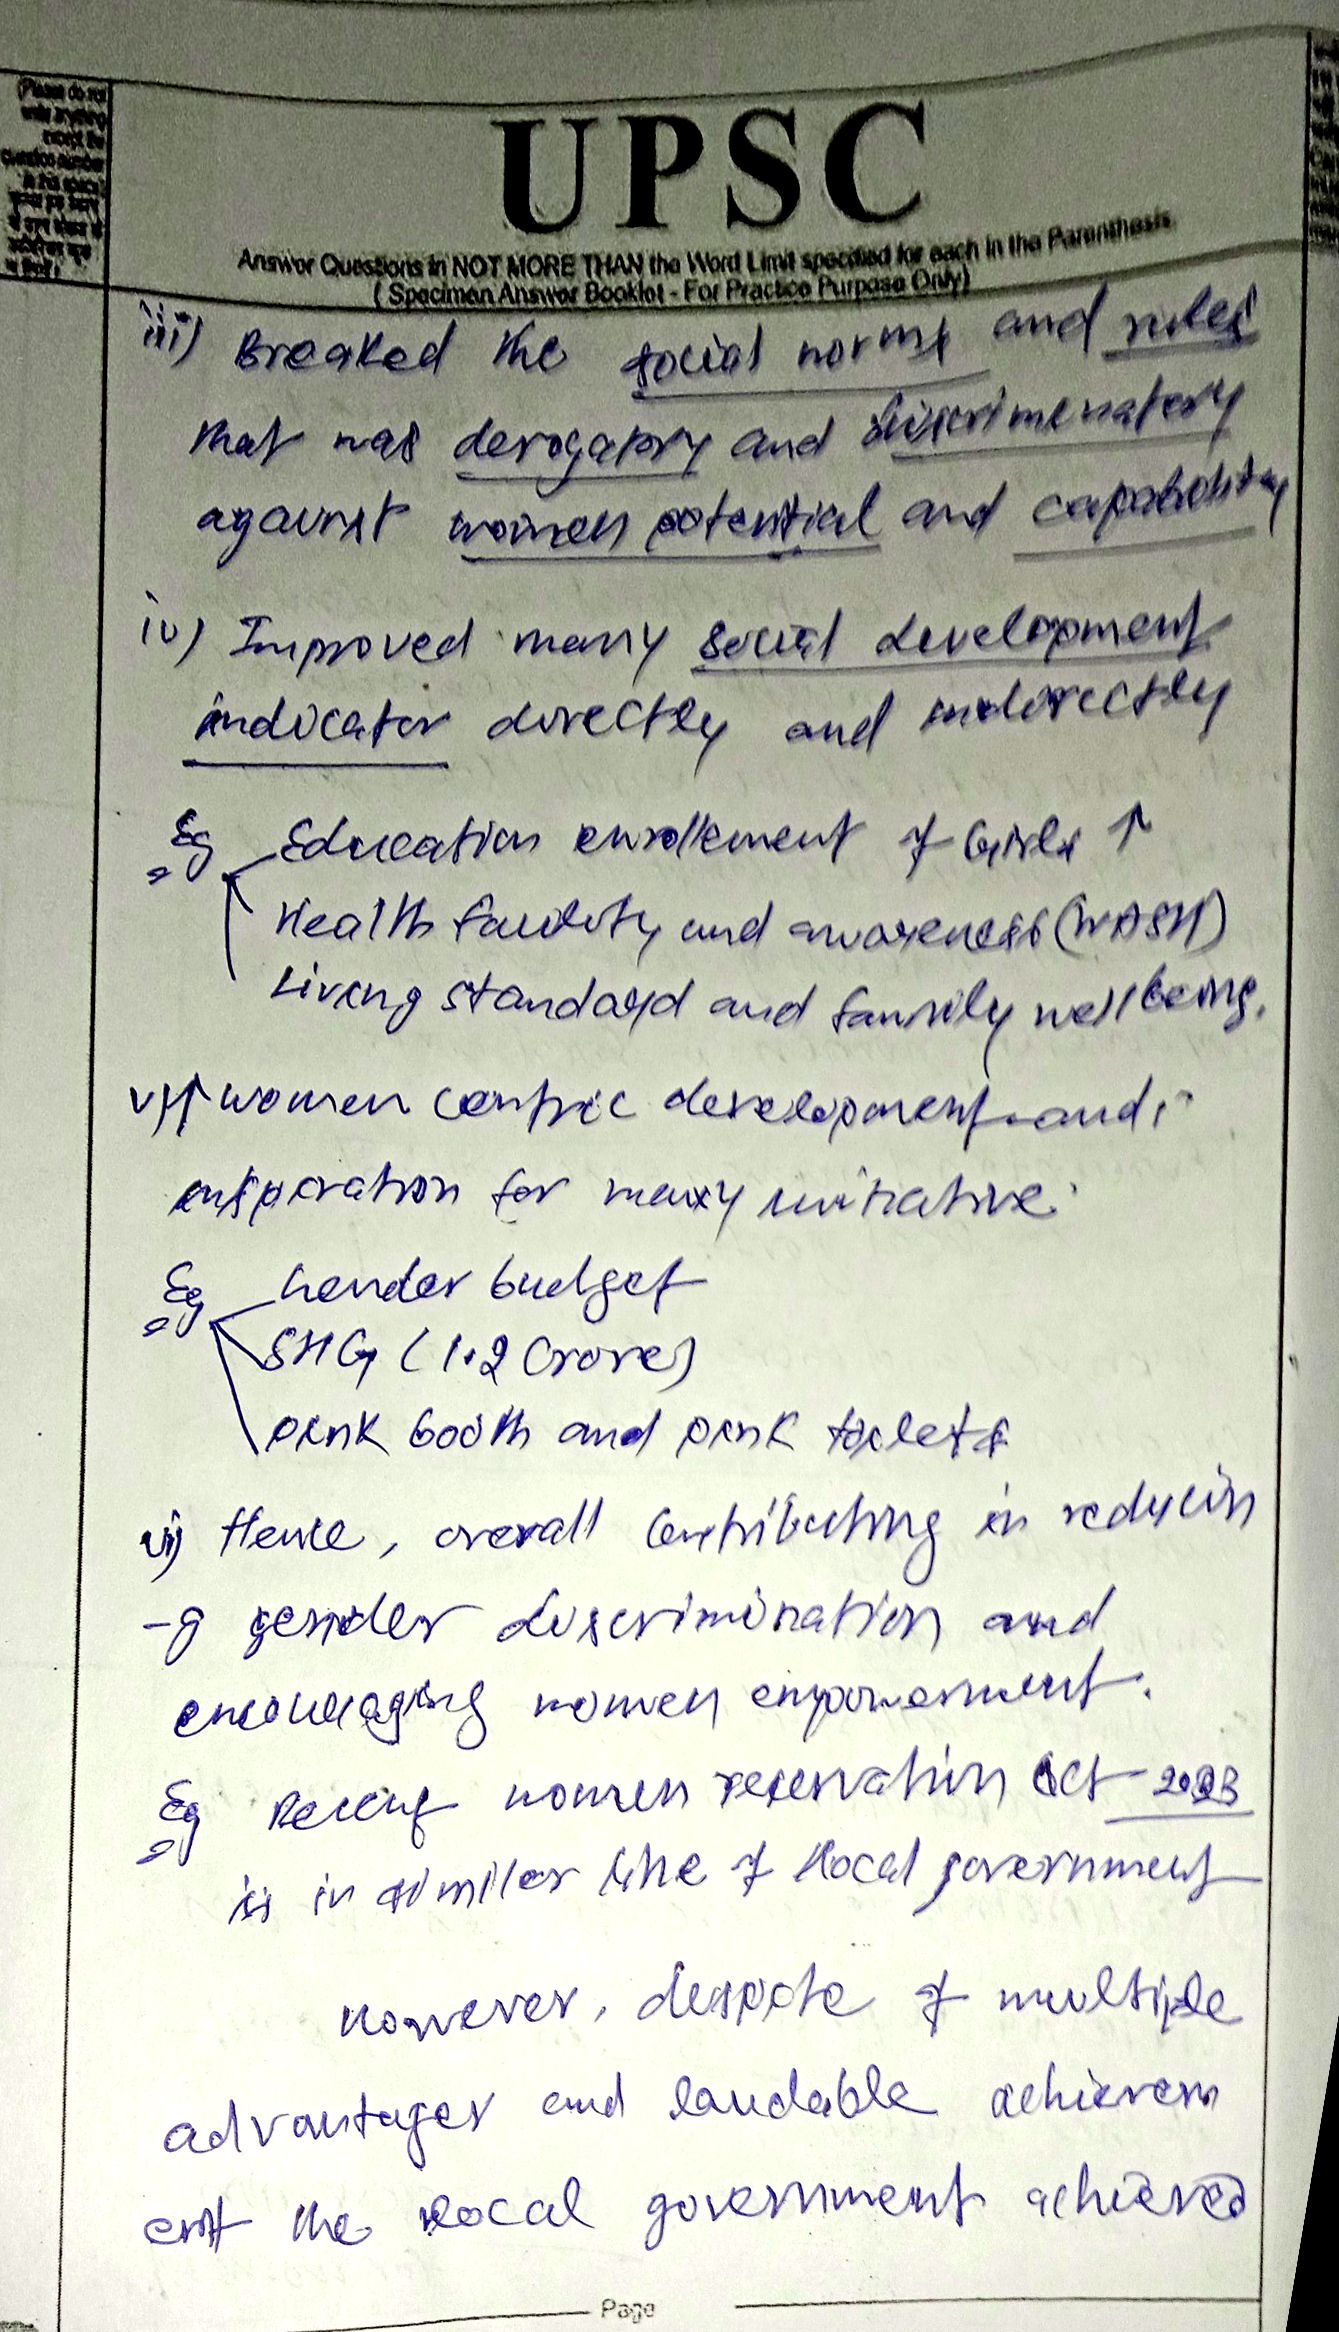 (Please do not
write anything
except the
question number
in this space)
UPSC
Answer Questions in NOT MORE THAN the Word Limit specified for each in the Parenthesis
( Specimen Answer Booklet - For Practice Purpose Only)
iii) Breaked the social norms and rules
that was derogatory and discrimenatory
against women potential and capability
iv) Improved many social development
indicator directly and indirectly
Eg Education enrollement of Girls ↑
Health facility and awareness (WASH)
Living standard and family wellbeing.
v) ↑ women centric development and
inspiration for many initiative.
Eg Gender budget
SHG (1.2 Crore)
pink booth and pink toilets
vi) Hence, overall contributing in reducin
-g gender discrimination and
encouraging women empowerment.
Eg Recent women reservation Act 2023
is in similar line of local government
However, despite of multiple
advantages and laudable achievem
ent the local government achieved
Page